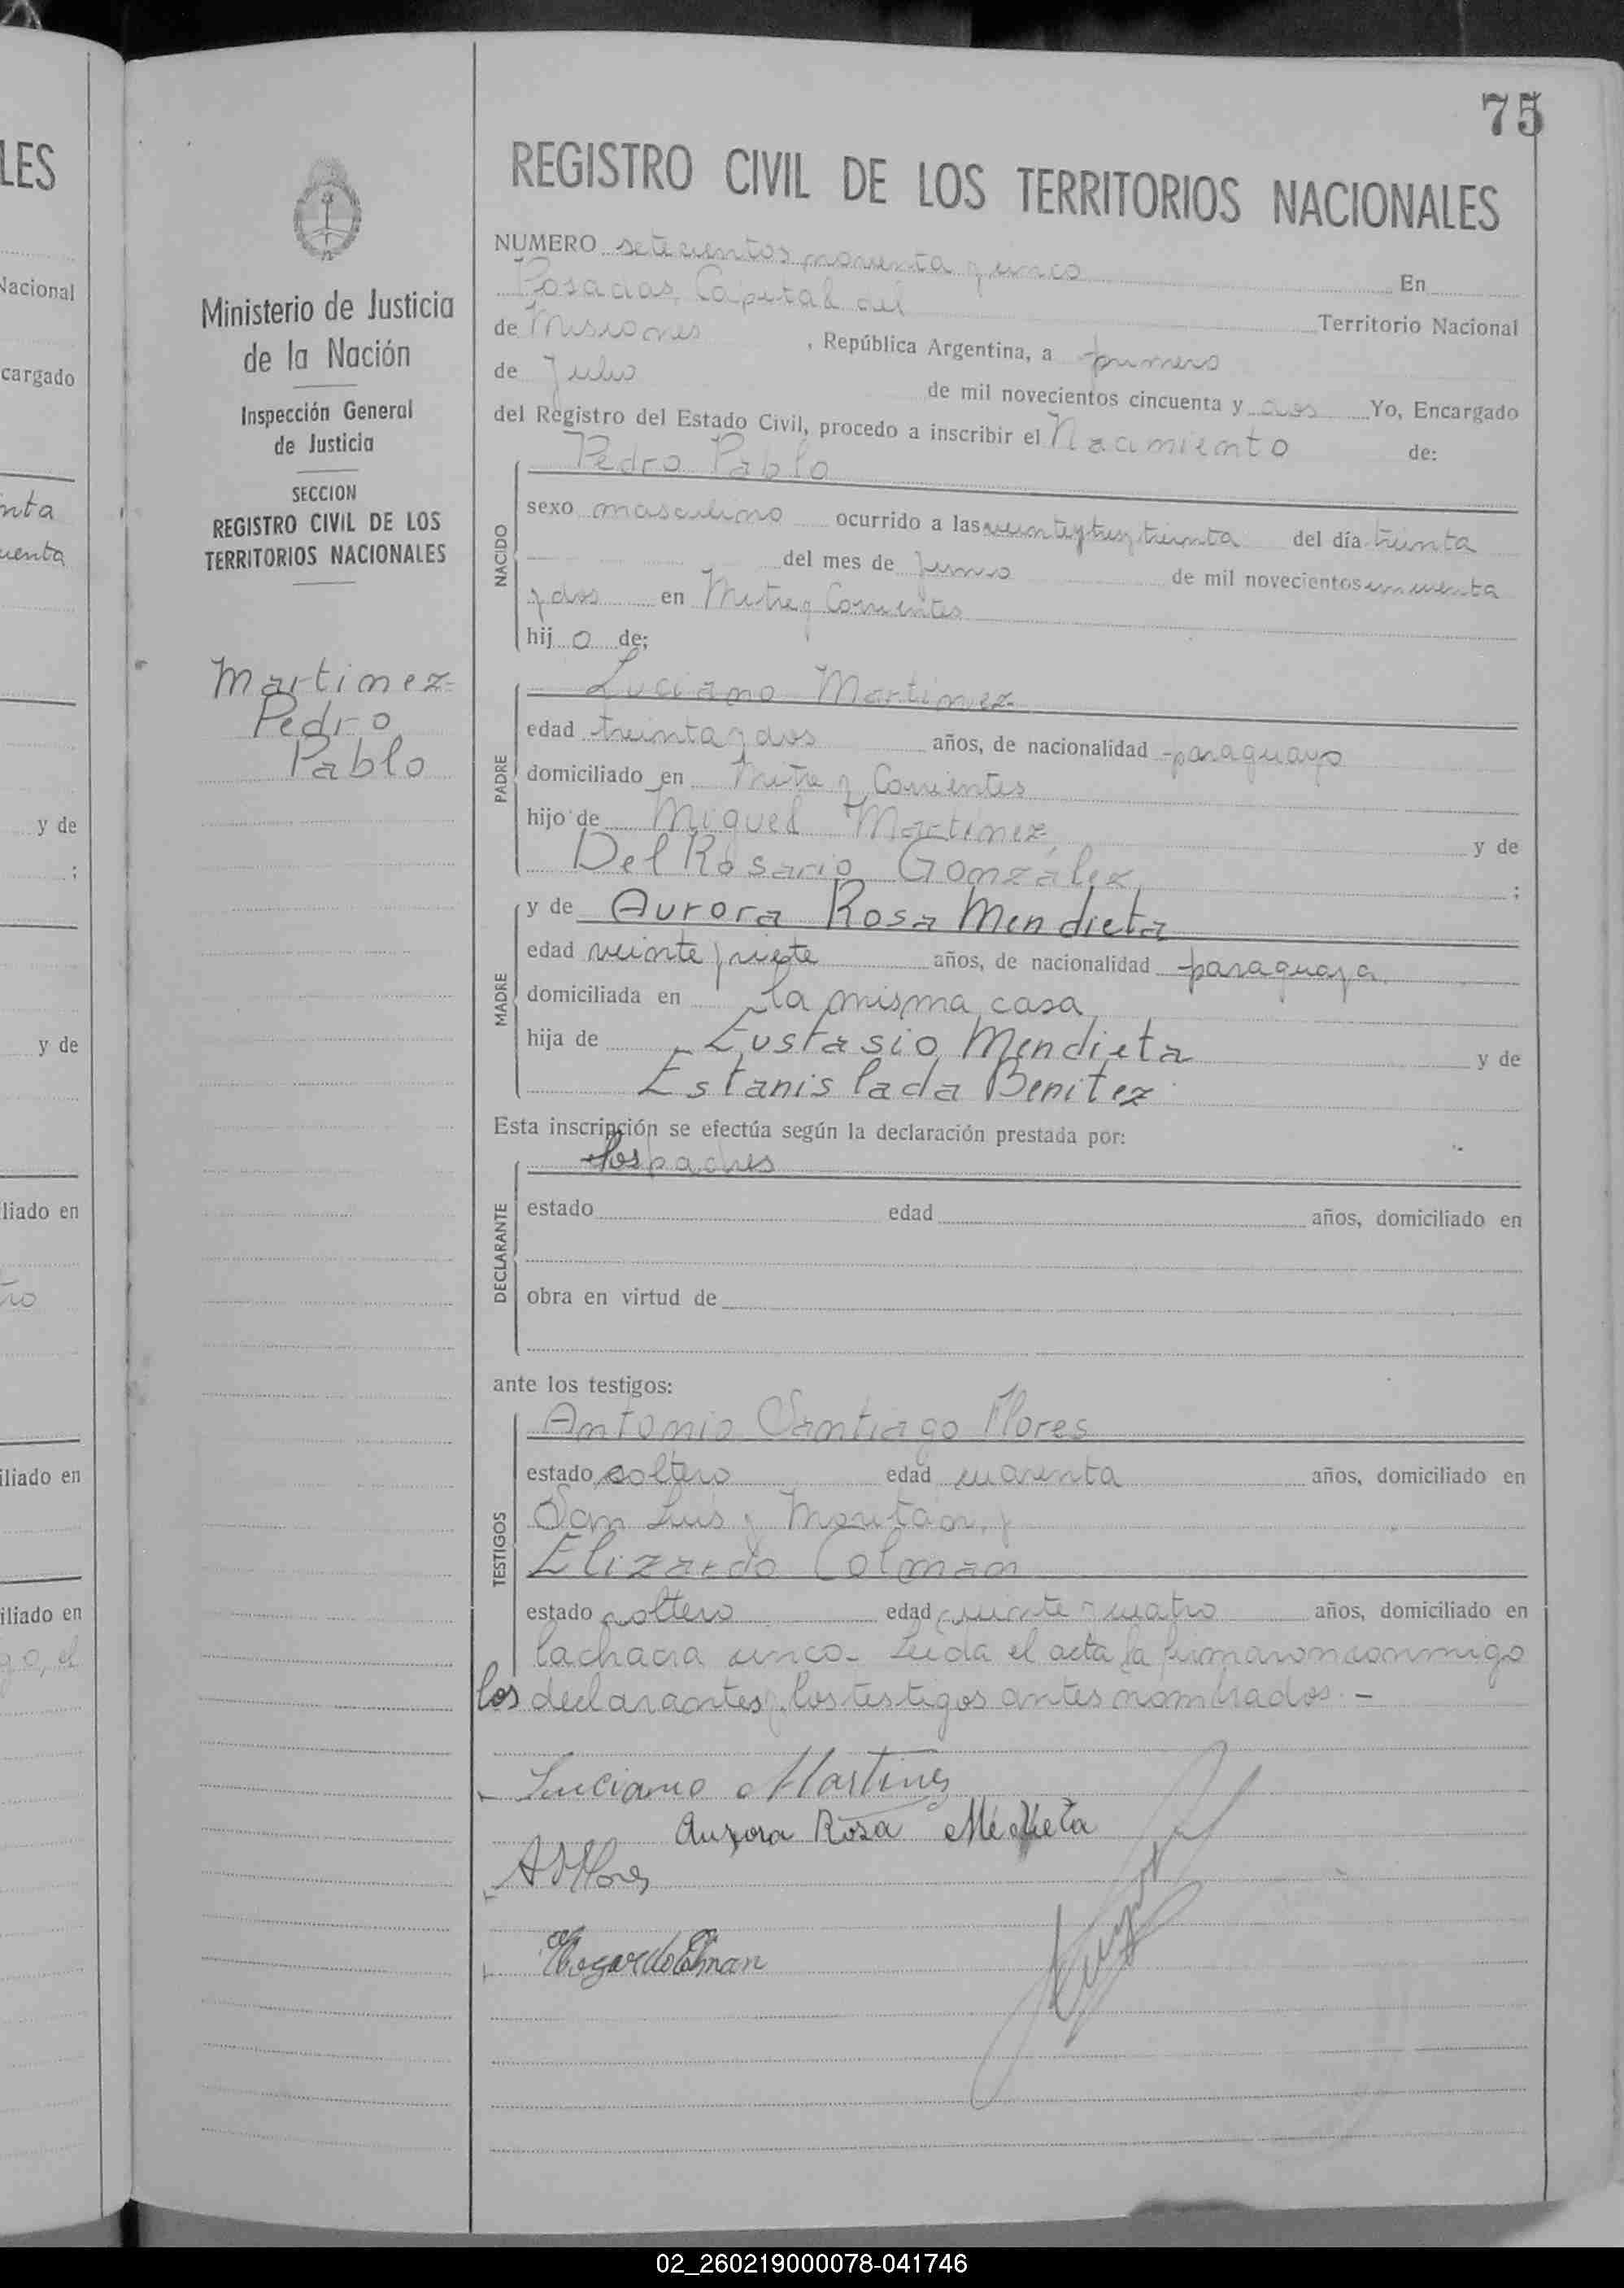 LES
Nacional
cargado
nta
uenta
y de
;
y de
liado en
iliado en
iliado en
go, el
75
Ministerio de Justicia
de la Nación
Inspección General
de Justicia
SECCION
REGISTRO CIVIL DE LOS
TERRITORIOS NACIONALES
Martinez=
Pedro
Pablo
REGISTRO CIVIL DE LOS TERRITORIOS NACIONALES
NUMERO setecientos noventa y cinco En
Posadas, Capital del Territorio Nacional
de Misiones, República Argentina, a primero
de Julio de mil novecientos cincuenta y dos Yo, Encargado
del Registro del Estado Civil, procedo a inscribir el Nacimiento de:
NACIDO
Pedro Pablo
sexo masculino ocurrido a las veinte y tres y treinta del día treinta
del mes de Junio de mil novecientos cincuenta
y dos en Mitre y Corrientes
hijo de;
PADRE
Luciano Martinez
edad treinta y dos años, de nacionalidad paraguayo
domiciliado en Mitre y Corrientes
hijo de Miguel Martinez y de
Del Rosario González ;
MADRE
y de Aurora Rosa Mendieta
edad veinte y siete años, de nacionalidad paraguaya
domiciliada en la misma casa
hija de Eustasio Mendieta y de
Estanislada Benitez
Esta inscripción se efectúa según la declaración prestada por:
DECLARANTE
los padres
estado edad años, domiciliado en
obra en virtud de
ante los testigos:
TESTIGOS
Antonio Santiago Flores
estado soltero edad cuarenta años, domiciliado en
San Luis y Moritán, y
Elizardo Colman
estado soltero edad veinte y cuatro años, domiciliado en
la chacra cinco.- Leida el acta la firmaron conmigo
los declarantes y los testigos antes nombrados.-
Luciano Martinez
Aurora Rosa Medieta
ASFlores
02_260219000078-041746